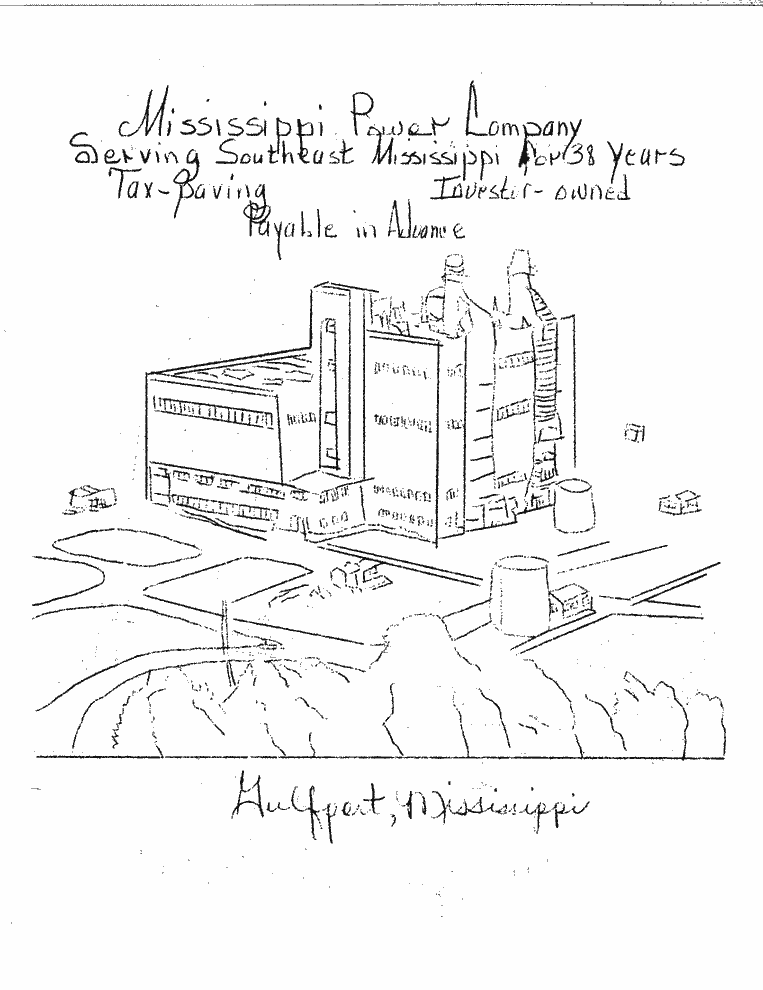 Mississippi Power Company
Serving Southeast Mississippi for 38 Years
Tax-Paving Investor-owned
Payable in Advance
Gulfport, Mississippi